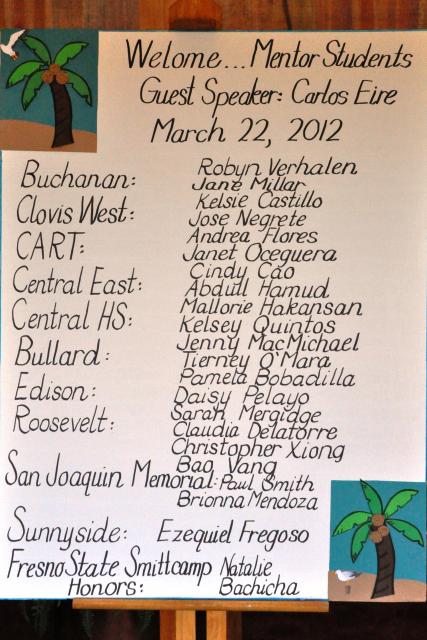 Welome... Mentor Students
Guest Speaker: Carlos Eire
March 22, 2012
Buchanan: Robyn Verhalen
Jane Millar
Clovis West: Kelsie Castillo
Jose Negrete
CART: Andrea Flores
Janet Oceguera
Central East: Cindy Cao
Abdull Hamud
Central HS: Mallorie Hakansan
Kelsey Quintos
Bullard: Jenny MacMichael
Tierney O'Mara
Edison: Pamela Bobadilla
Daisy Pelayo
Roosevelt: Sarah Mergidge
Claudia Delatorre
Christopher Xiong
Bao Vang
San Joaquin Memorial: Paul Smith
Brionna Mendoza
Sunnyside: Ezequiel Fregoso
Fresno State Smittcamp Natalie
Honors: Bachicha